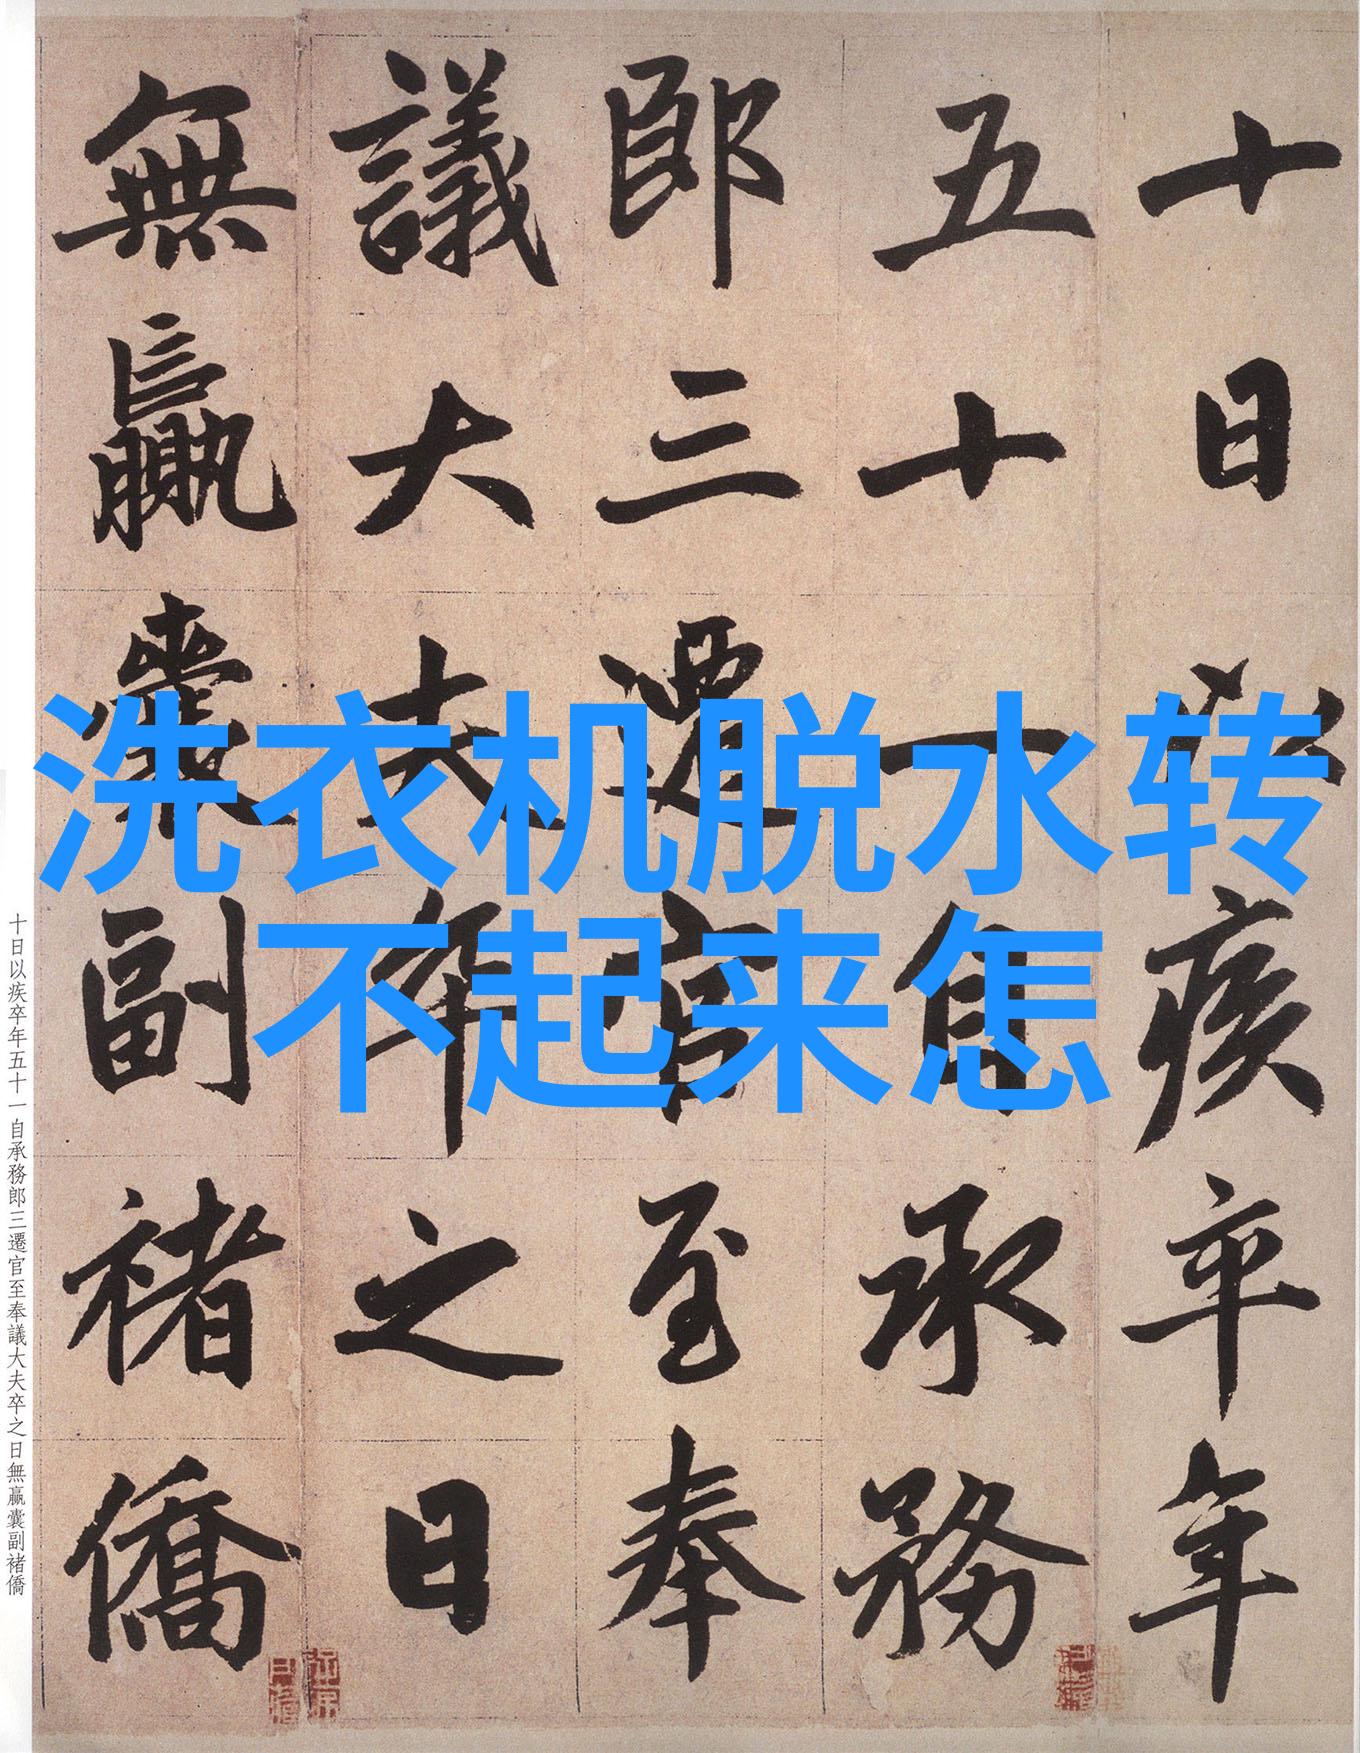 洗衣机脱水转
不起来怎
十日以疾卒年
五十一自承務
郎三遷官至奉
議大夫卒之日
無贏囊副褚僑
十日以疾卒年五十一自承務郎三遷官至奉議大夫卒之日無贏囊副褚僑